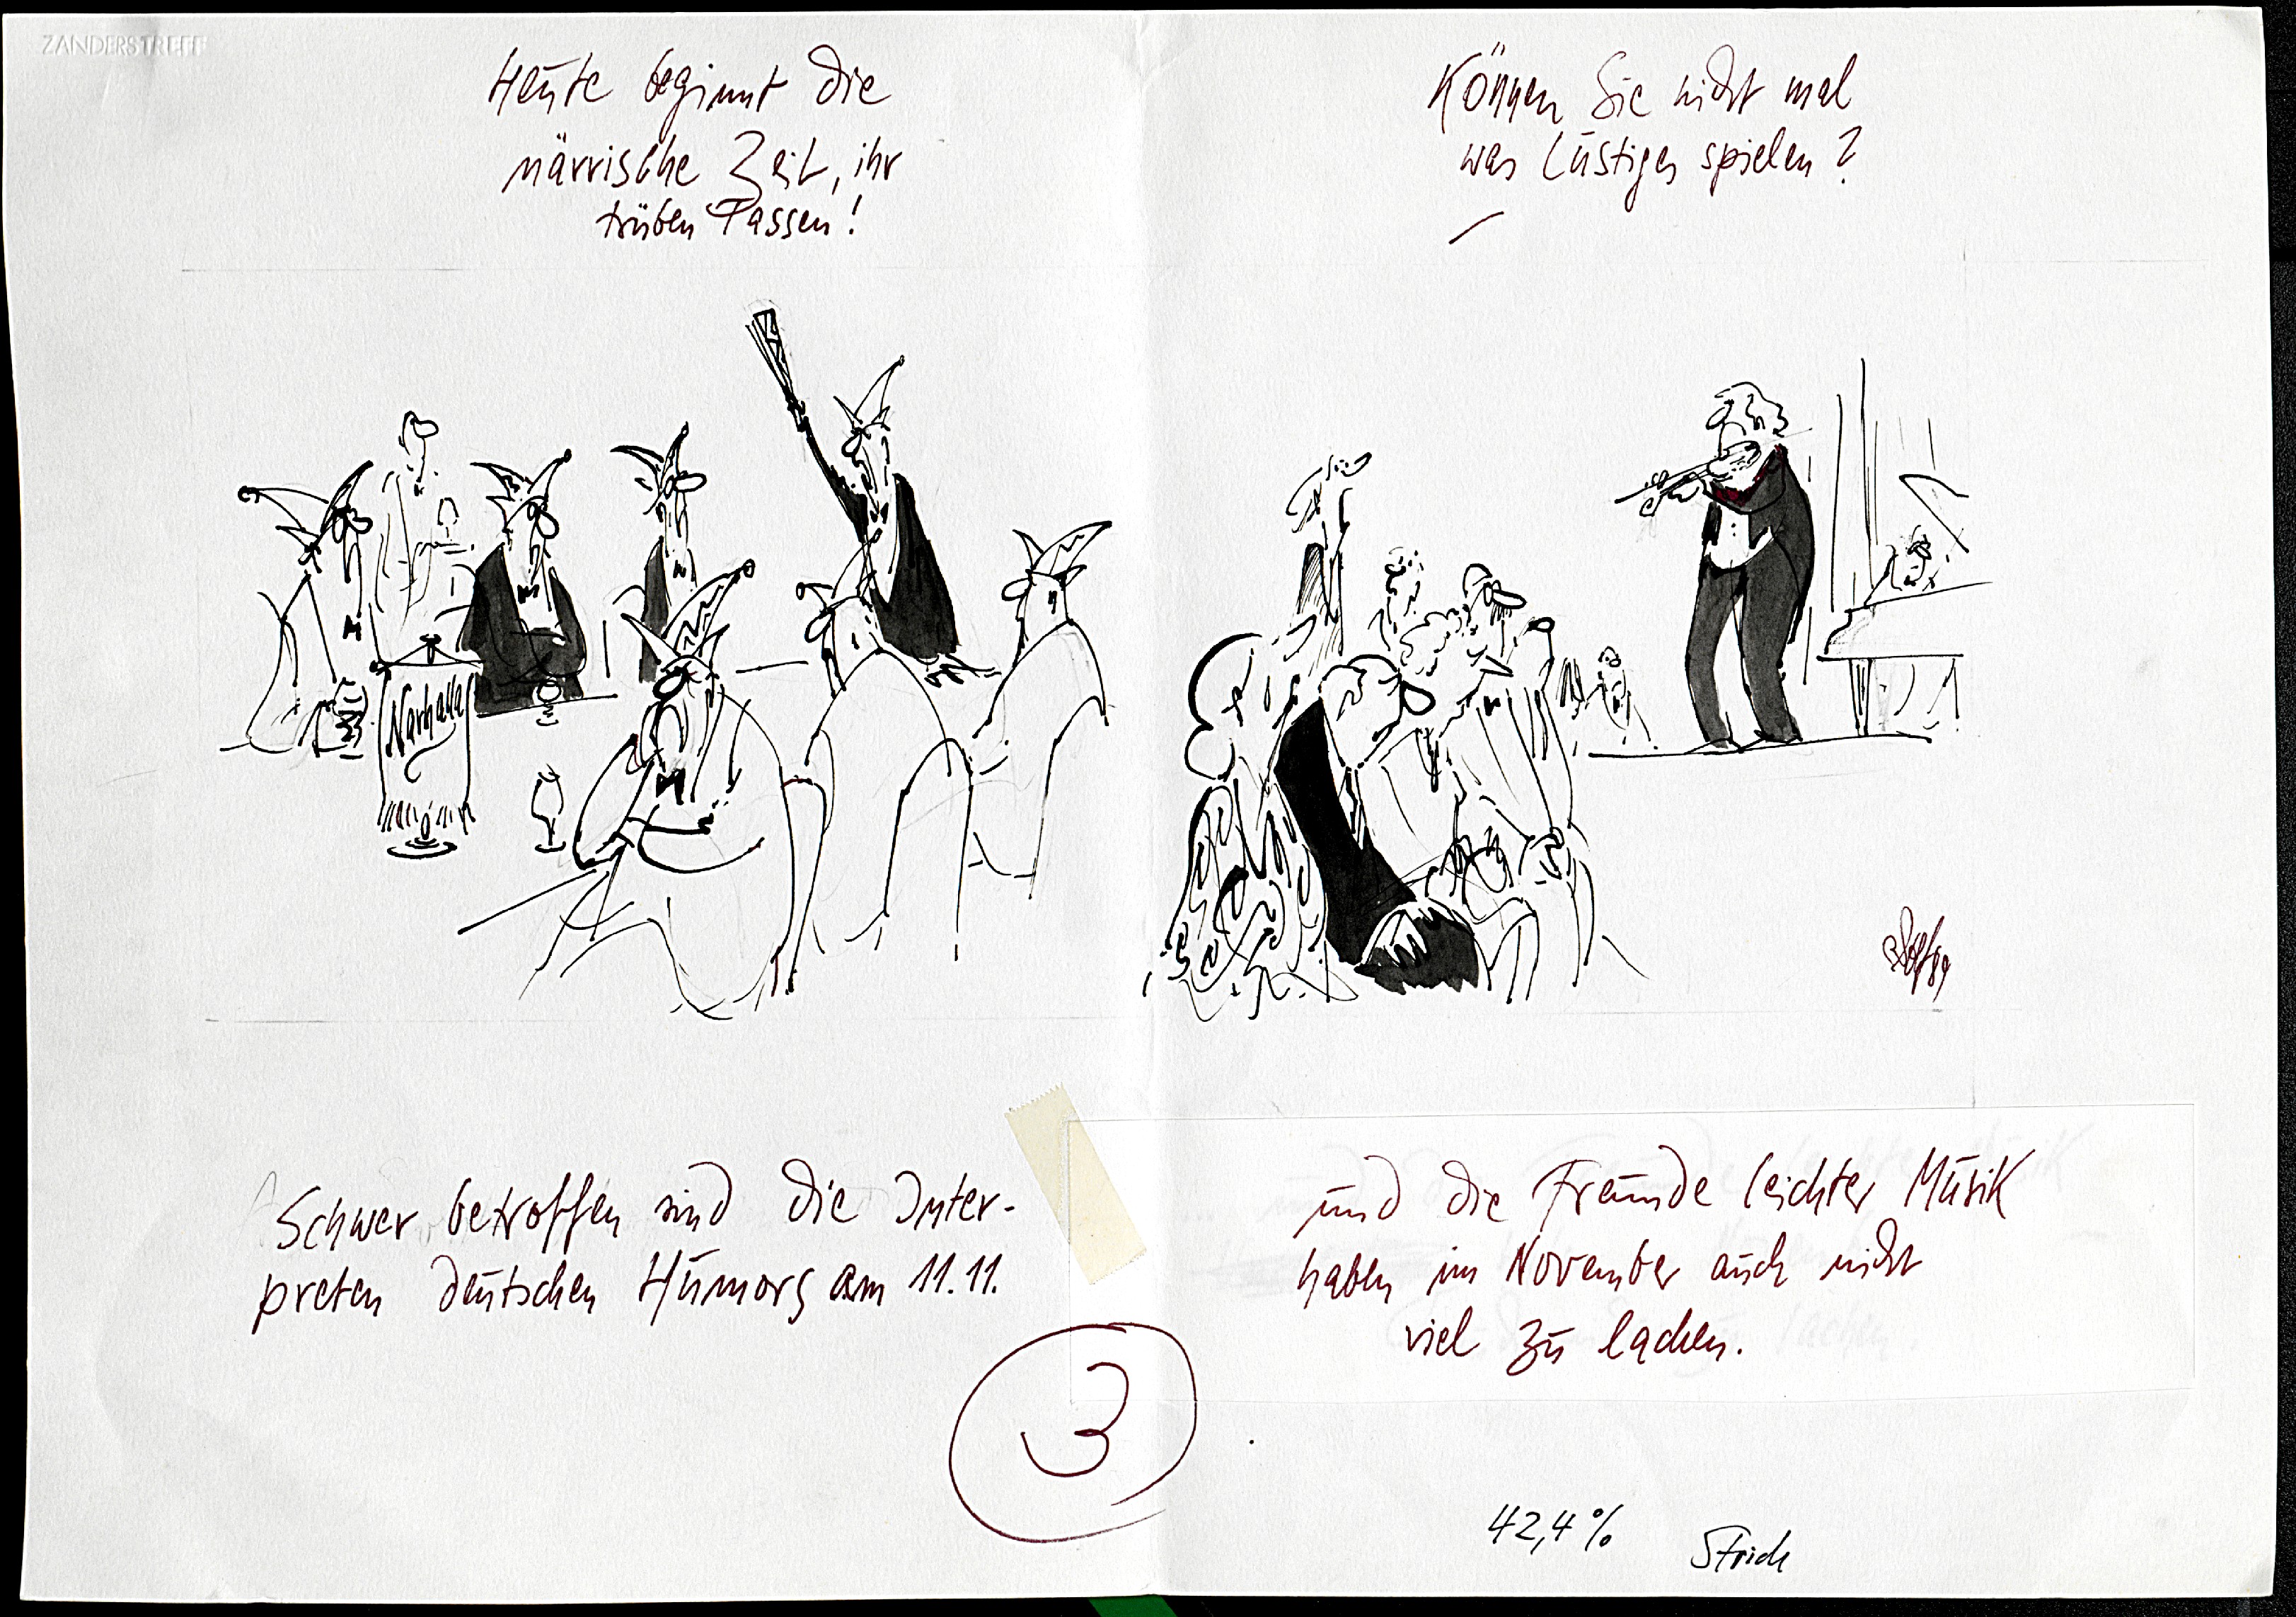 ZANDERSTREFF
Heute beginnt die
närrische Zeit, ihr
trüben Tassen!
Können Sie nicht mal
was Lustiges spielen?
Narhalla
Schwer betroffen sind die Inter-
preten deutschen Humors am 11.11.
und die Freunde leichter Musik
haben im November auch nicht
viel zu lachen.
3
42,4% Strich